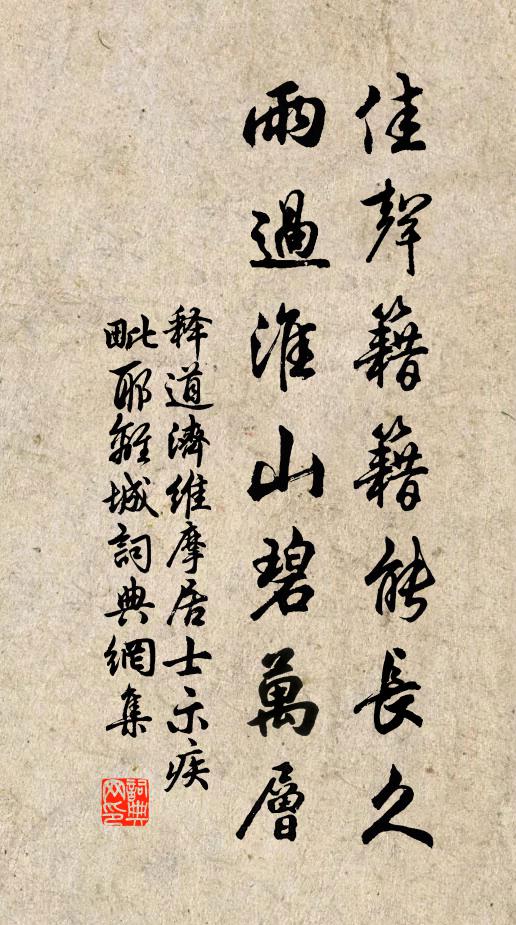 佳聲籍籍能長久
雨過淮山碧萬層
释道濟維摩居士示疾
毗耶離城詞典網集
詞典网印